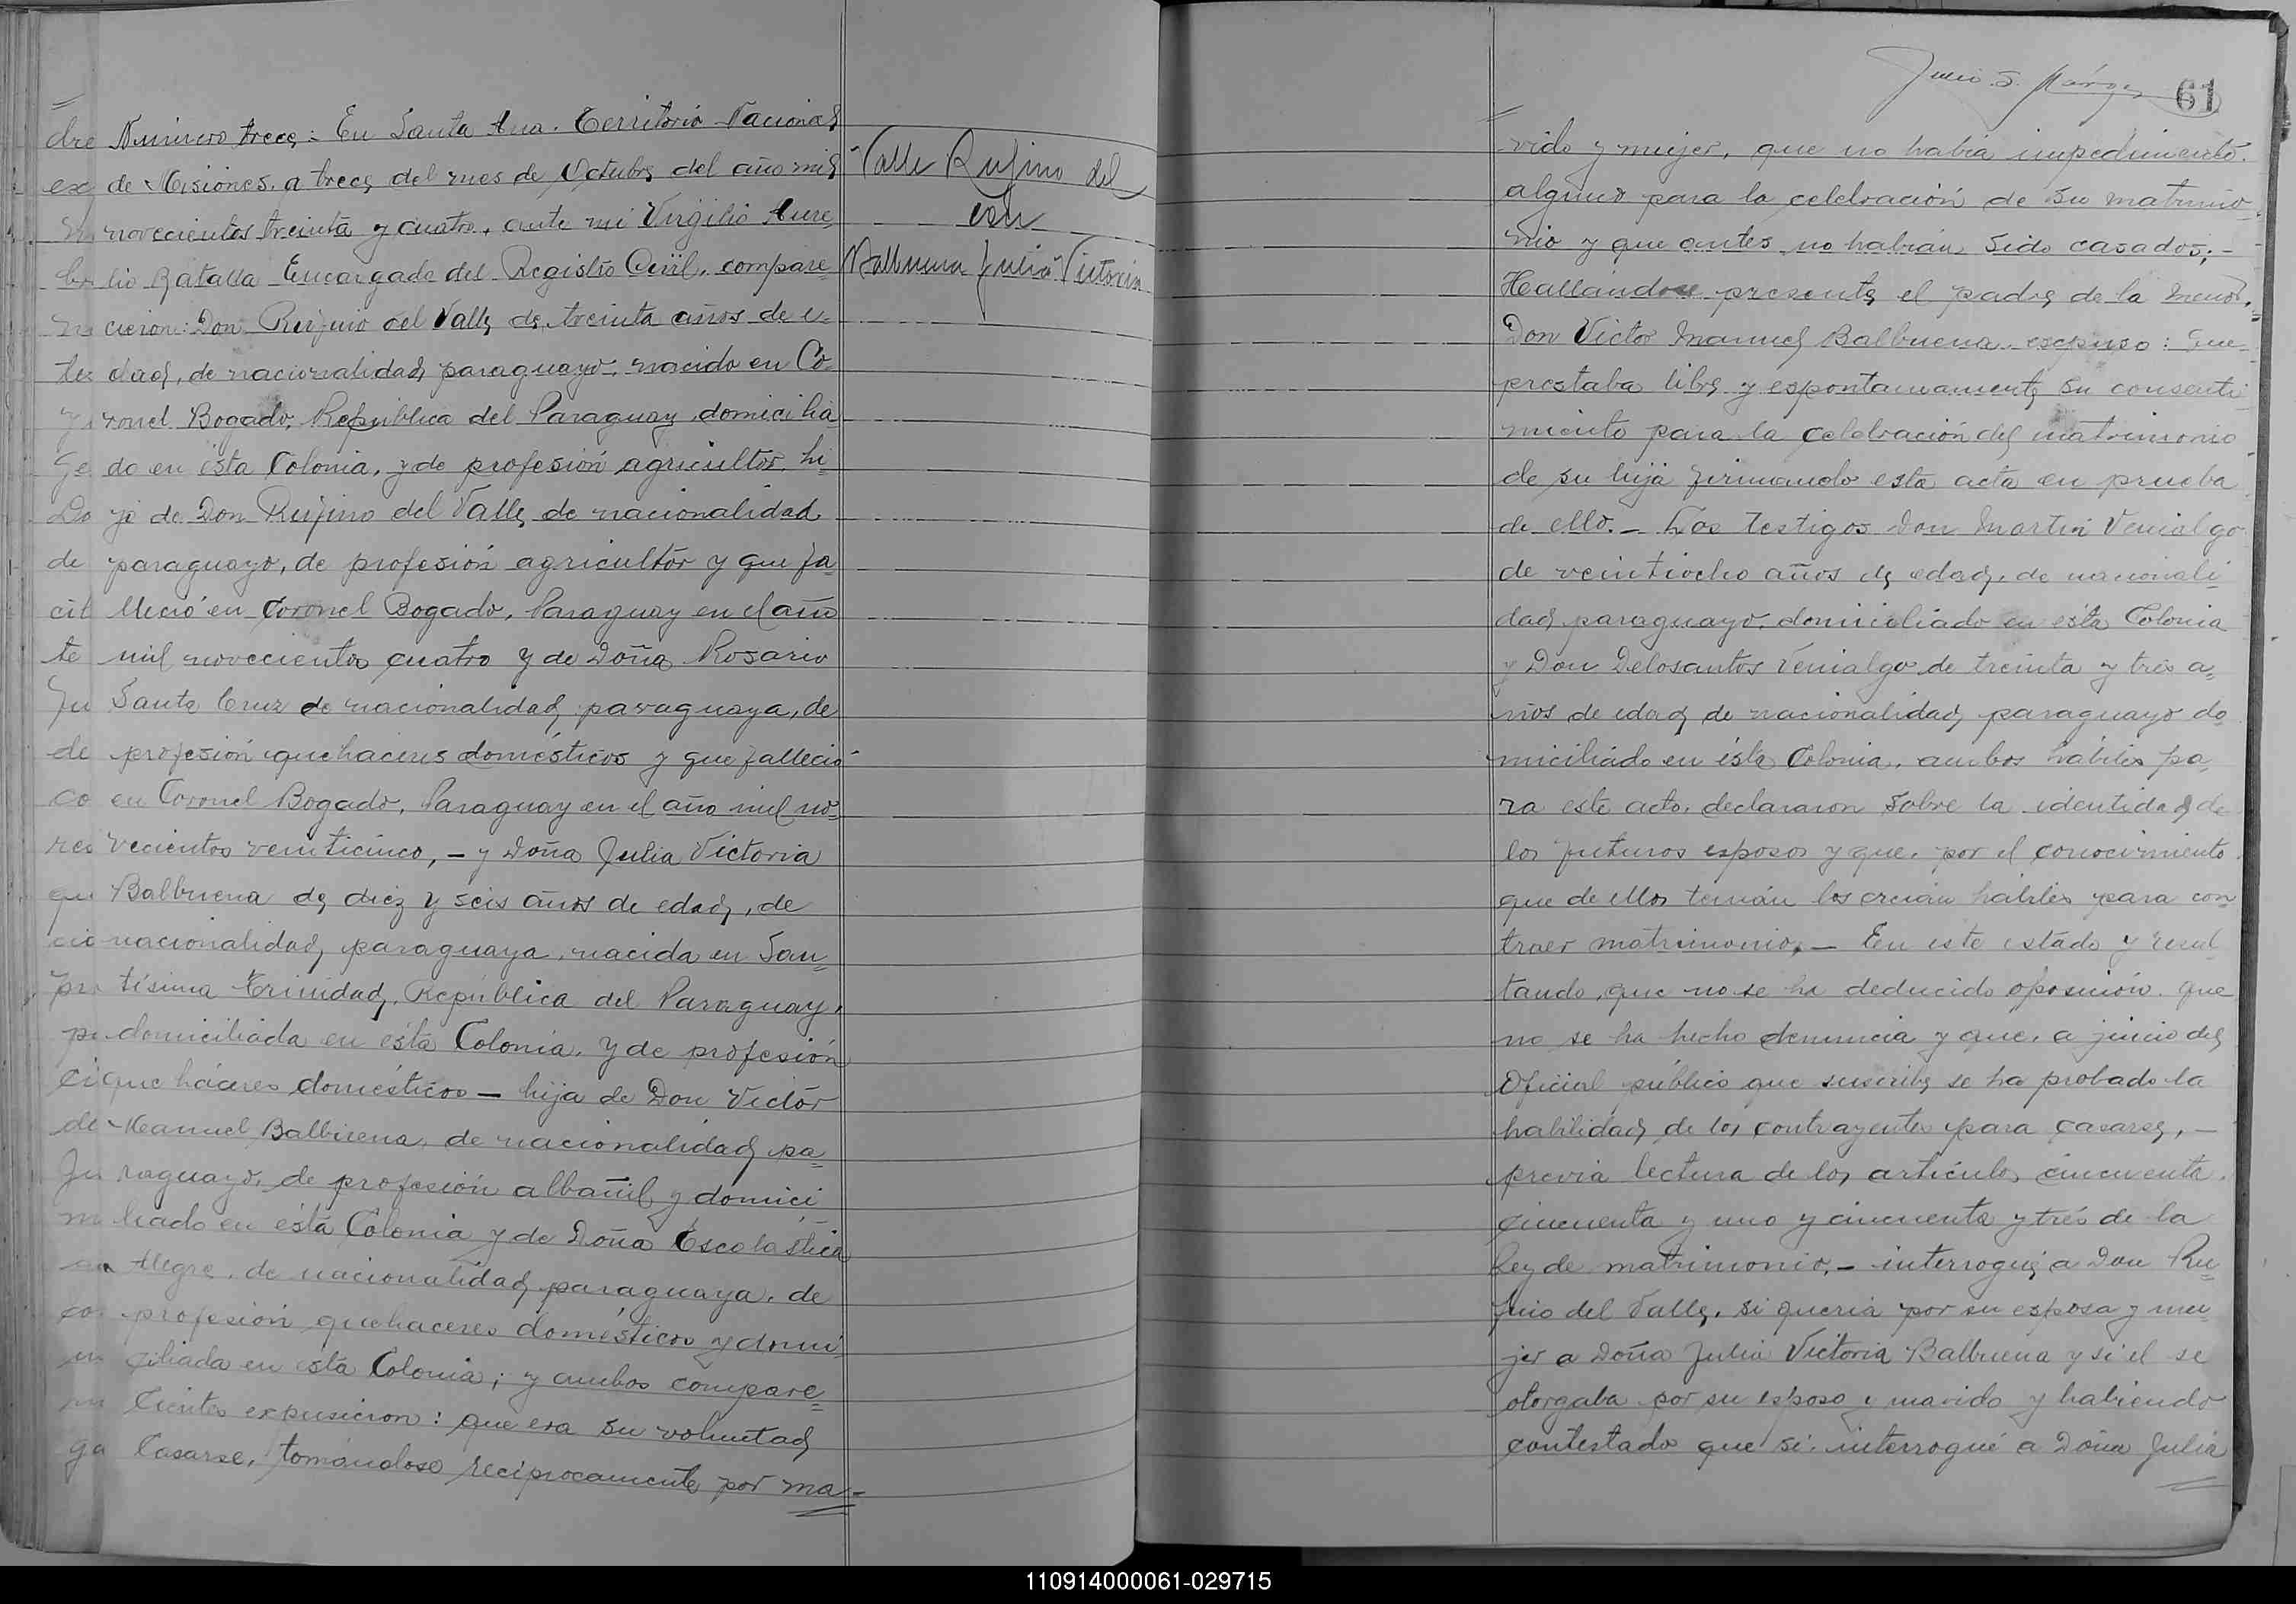 Número trece: En Santa Ana. Territorio Nacional
de Misiones, a trece del mes de Octubre del año mil
novecientos treinta y cuatro, ante mi Virgilio Aure
lio Batalla Encargado del Registro Civil, compare=
cieron: Don Rufino del Valle de treinta años de e=
dad, de nacionalidad paraguayo, nacido en Co=
ronel Bogado, República del Paraguay domicilia
do en ésta Colonia, y de profesión agricultor, hi=
jo de Don Rufino del Valle de nacionalidad
paraguayo, de profesión agricultor y que fa=
lleció en Coronel Bogado, Paraguay en el año
mil novecientos cuatro y de Doña Rosario
Santa Cruz de nacionalidad paraguaya, de
profesión quehaceres domésticos y que falleció
en Coronel Bogado, Paraguay en el año mil no=
vecientos veinticinco, - y Doña Julia Victoria
Balbuena de diez y seis años de edad, de
nacionalidad paraguaya, nacida en San=
tísima Trinidad, República del Paraguay,
domiciliada en ésta Colonia, y de profesión
que háceres domésticos - hija de Don Victór
Manuel Balbuena, de nacionalidad pa=
raguayo, de profesión albañil y domici
liado en ésta Colonia y de Doña Escolastica
Alegre, de nacionalidad paraguaya, de
profesión quehaceres domésticos y domi=
ciliada en ésta Colonia; y ambos compare=
cientes expusieron: que era su voluntad
Casarse, tomándose recíprocamente por ma=
Valle Rufino del
con
Balbuena Julia Victoria
61
rido y mujer, que no había impedimento
alguno para la celebración de su matrimo=
nio y que antes no habían sido casados; -
Hallándose presente el padre de la menor,
Don Victor Manuel Balbuena expuso: Que=
prestaba libre y espontaneamente su consenti
miento para la celebración del matrimonio
de su hija firmando esta acta en prueba
de ello. - Los testigos Don Martin Venialgo
de veintiocho años de edad, de nacionali
dad paraguayo, domiciliado en ésta Colonia
y Don Delosantos Venialgo de treinta y tres a=
ños de edad de nacionalidad paraguayo do
miciliado en ésta Colonia, ambos hábiles pa=
ra este acto, declararon sobre la identidad de
los futuros esposos y que, por el conocimiento
que de ellos tenían los creían hábiles para con
traer matrimonio, - En este estado y resul
tando, que no se ha deducido oposición, que
no se ha hecho denuncia y que, a juicio del
Oficial público que suscribe se ha probado la
habilidad de los contrayentes para casarse, -
previa lectura de los artículos cincuenta,
cincuenta y uno y cincuenta y tres de la
Ley de matrimonio, - interrogué a Don Ru=
fino del Valle, si quería por su esposa y mu
jer a Doña Julia Victoria Balbuena y si él se
otorgaba por su esposo y marido y habiendo
contestado que sí, interrogué a Doña Julia
110914000061-029715